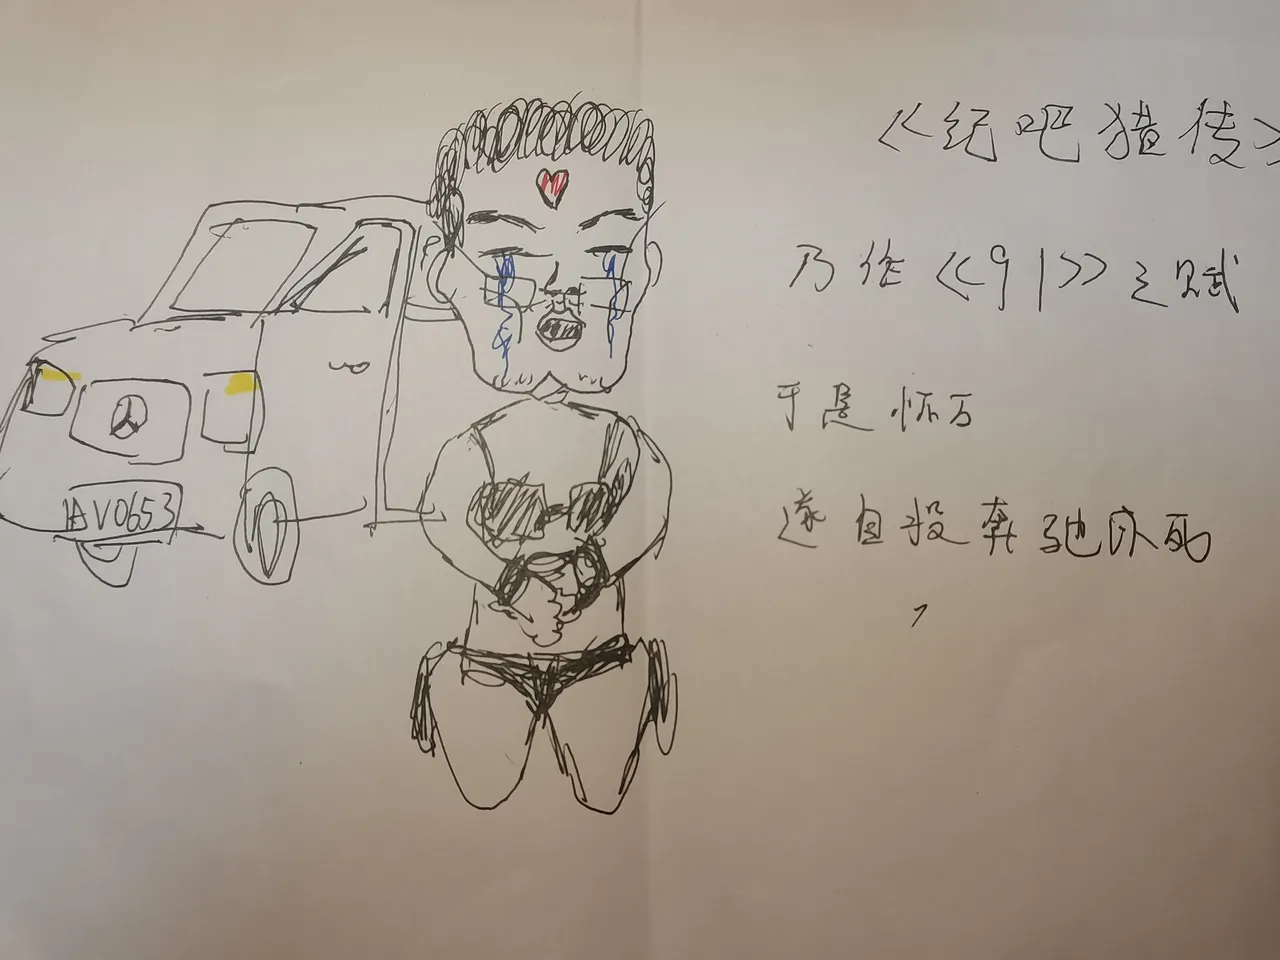 《纪吧猪传》
乃作《91》之赋
于是怀石
遂自投奔驰以死
AV0653